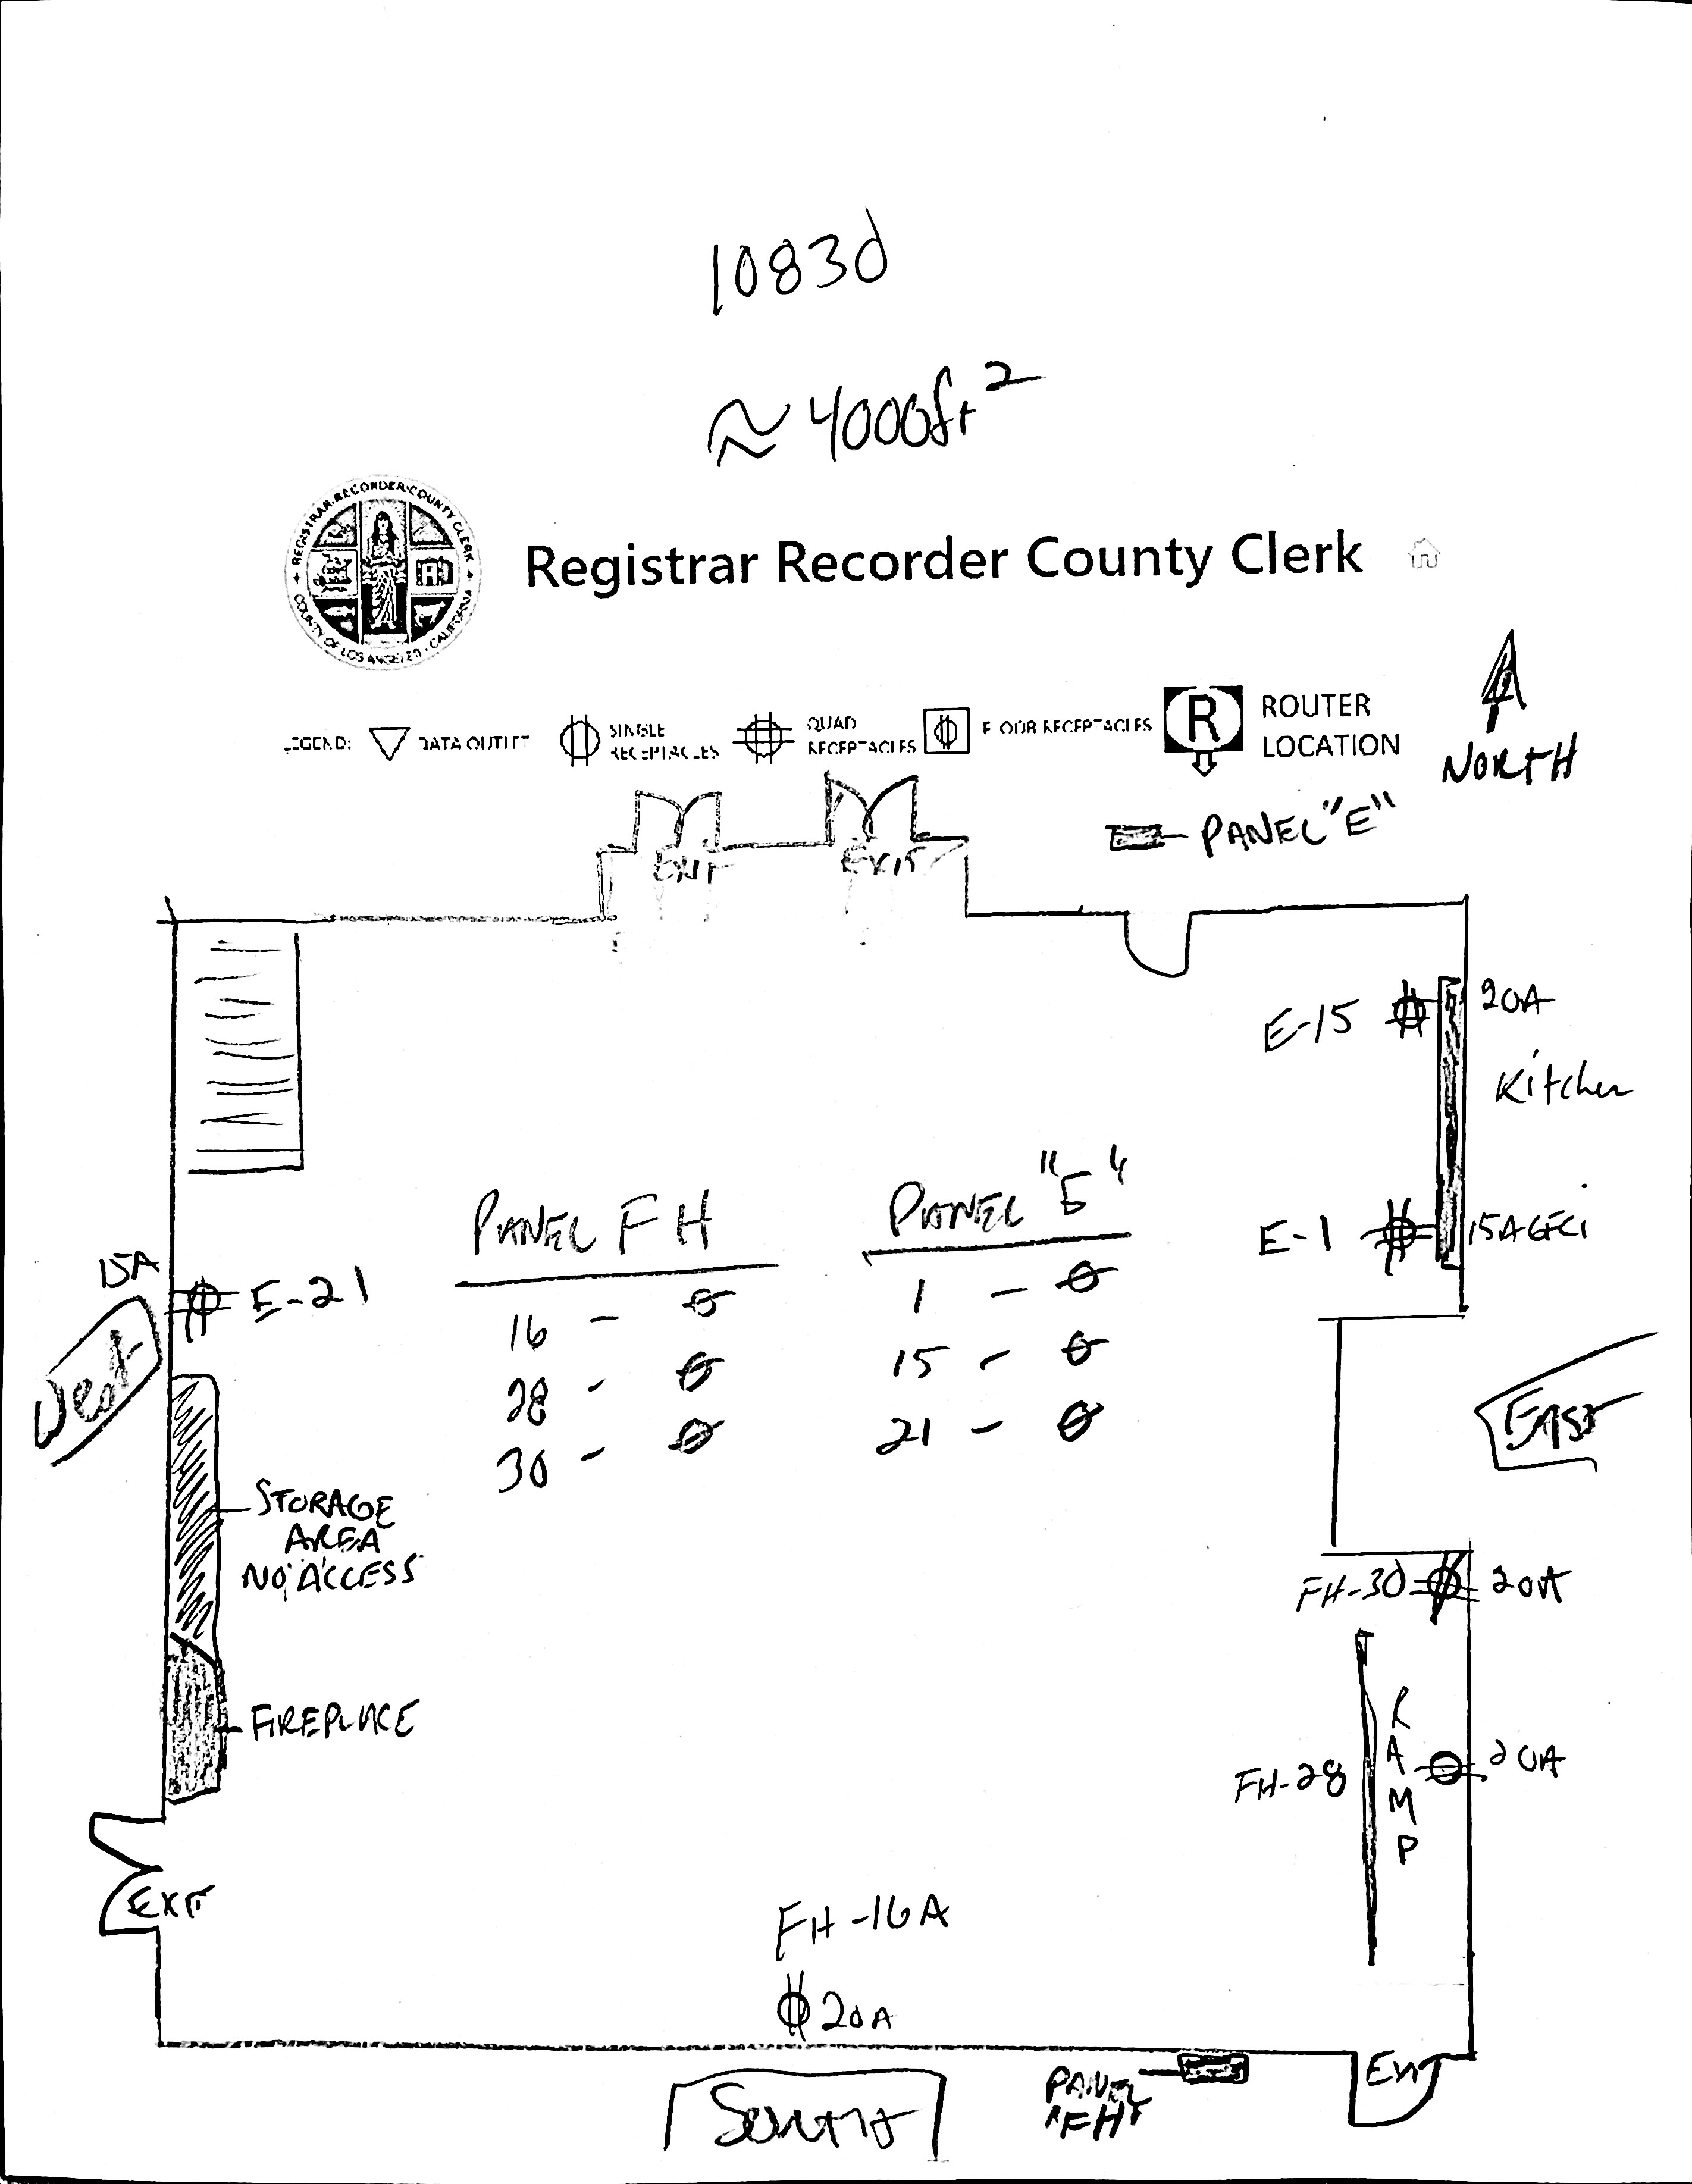 1083d
≈ 4000ft²
REGISTRAR-RECORDER-COUNTY CLERK
COUNTY OF LOS ANGELES - CALIFORNIA
Registrar Recorder County Clerk
LEGEND: DATA OUTLET
SINGLE
RECEPTACLES
QUAD
RECEPTACLES
FLOOR RECEPTACLES
R
ROUTER
LOCATION
NORTH
PANEL "E"
EXIT
EXIT
E-15
20A
Kitchen
E-1
15A GFCI
15A
E-21
West
PANEL FH
16 -
28 -
30 -
PANEL "E"
1 -
15 -
21 -
EAST
STORAGE
AREA
NO ACCESS
FH-30
20A
FIREPLACE
RAMP
FH-28
20A
EXIT
FH-16A
20A
South
PANEL
"FH"